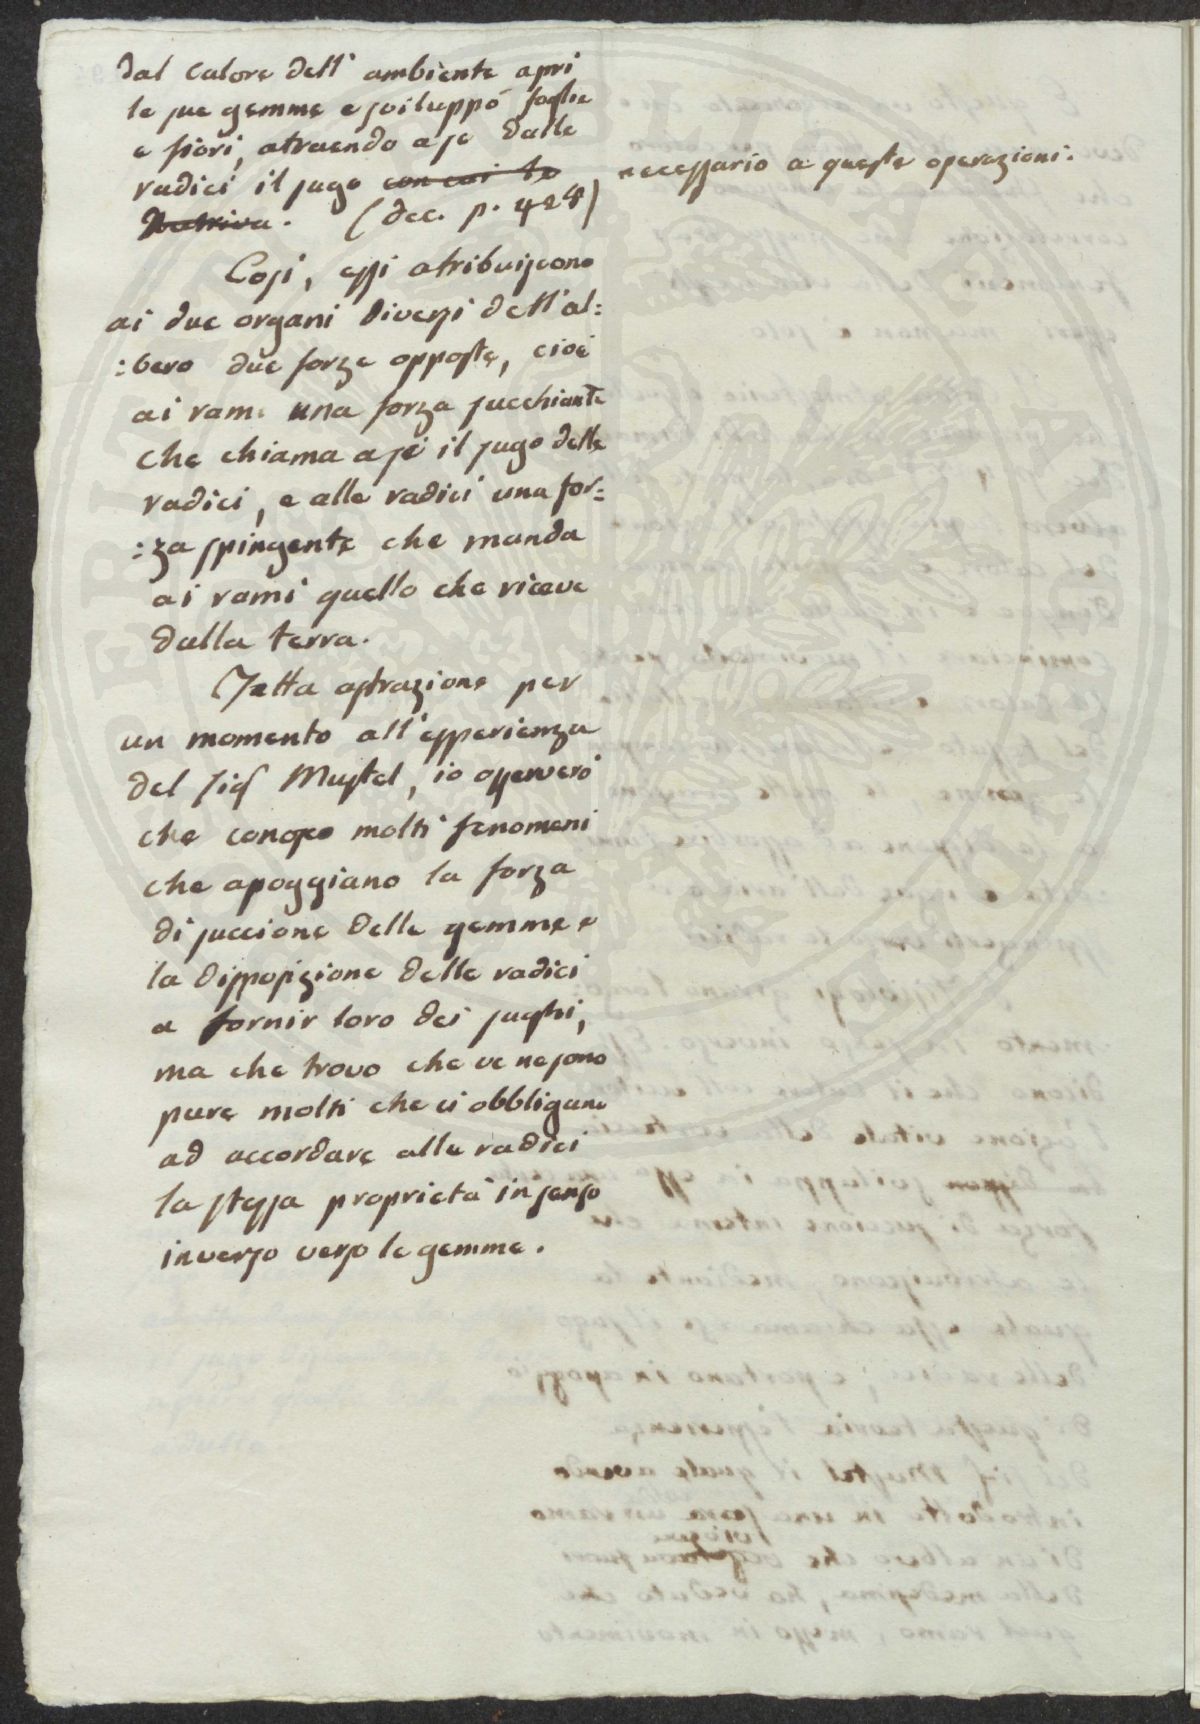 dal calore dell' ambiente aprì
le sue gemme e sviluppò foglie
e fiori, atraendo a se dalle
radici il sugo con cui le
nutriva. (dec. p. 428)
necessario a queste operazioni.
Così, essi atribuiscono
ai due organi diversi dell'al:
:bero due forze opposte, cioè
ai rami una forza succhiante
che chiama a sè il sugo delle
radici, e alle radici una for:
:za spingente che manda
ai rami quello che riceve
dalla terra.
Fatta astrazione per
un momento all'esperienza
del Sig Mustel, io osserverò
che conosco molti fenomeni
che apoggiano la forza
di succione delle gemme e
la disposizione delle radici
a fornir loro dei sughi,
ma che trovo che ve ne sono
pure molti che ci obbligano
ad accordare alle radici
la stessa proprietà in senso
inverso verso le gemme.